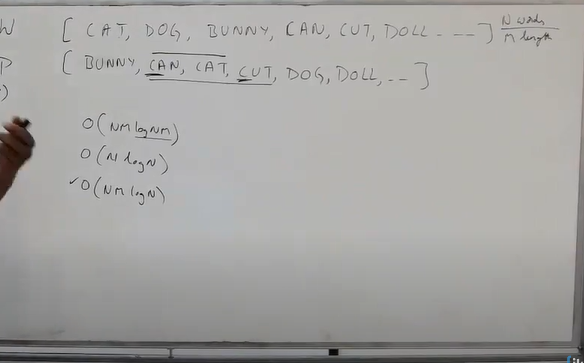 W [ CAT, DOG, BUNNY, CAN, CUT, DOLL - - - - ] N words
M length
P [ BUNNY, CAN, CAT, CUT, DOG, DOLL, -- ]
)
O(NM log NM)
O(N log N)
✓O(NM log N)